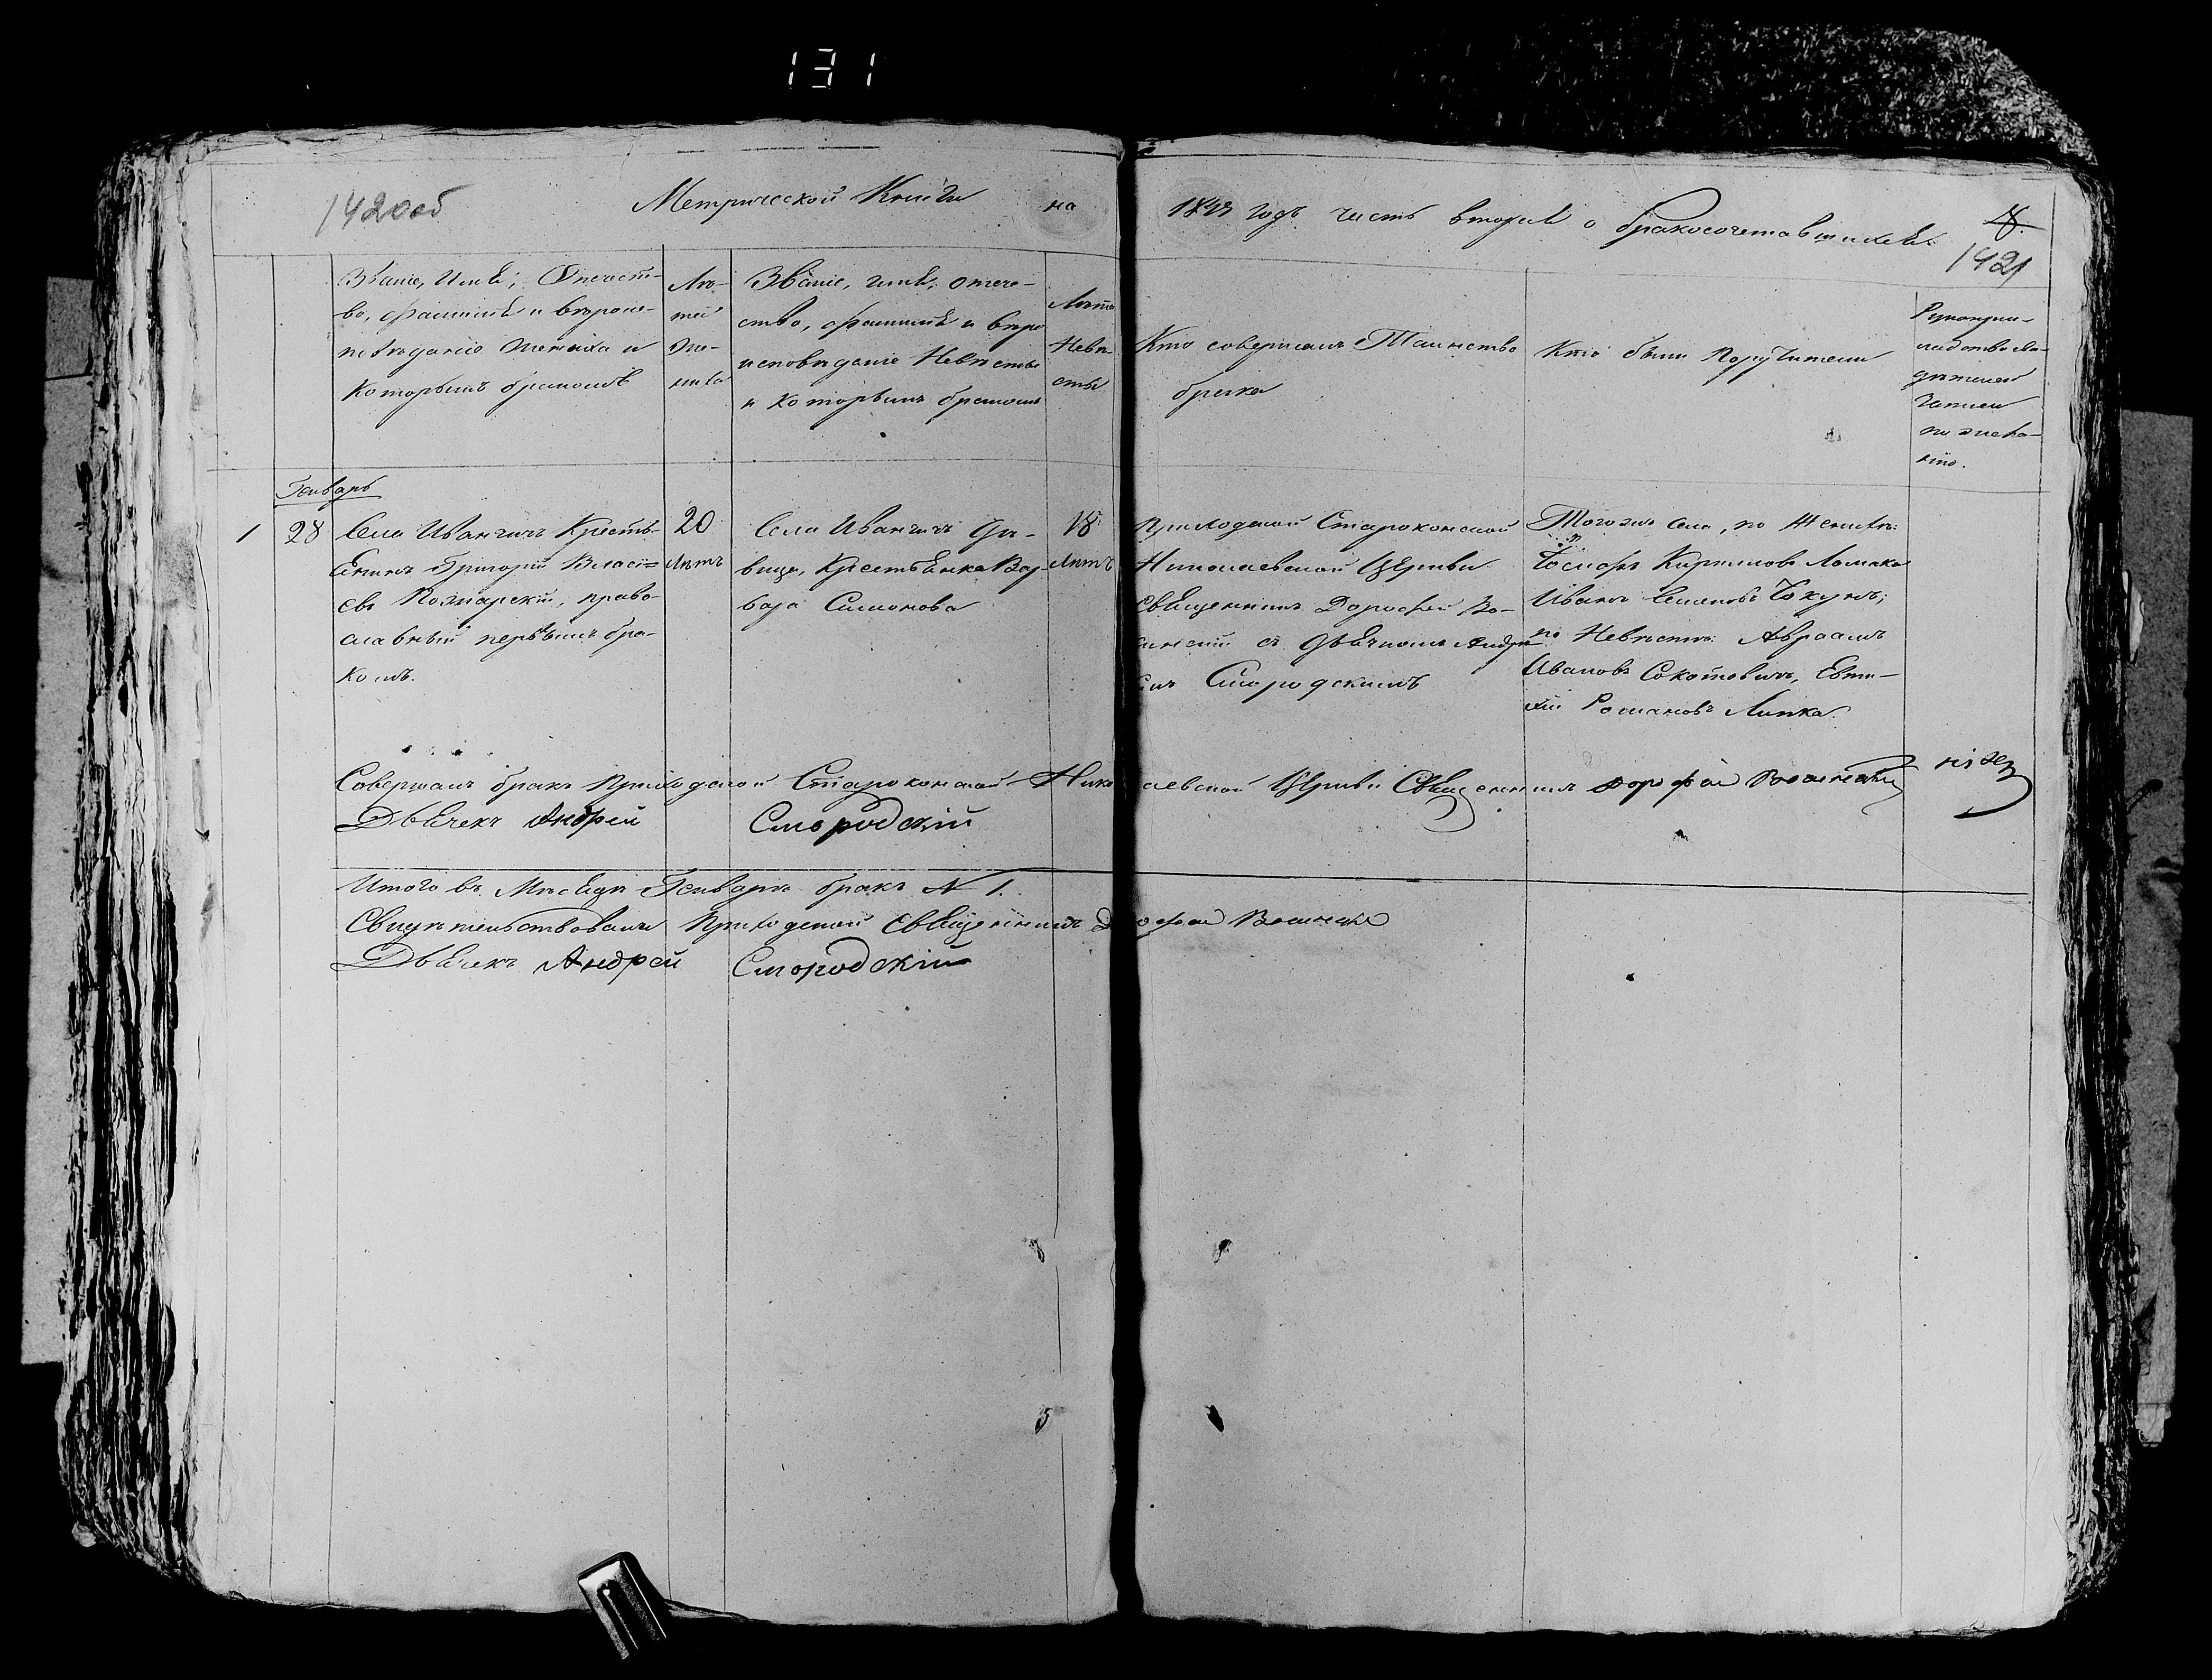 131
1420об
Метрической Книги на 1844 годъ часть вторая о бракосочетавшихся.
18.
1421
Званіе, Имя, Отчест-
во, фамилія и вѣроис-
повѣданіе Жениха и
Которымъ бракомъ
Лѣ-
та
Же-
ниха
Званіе, имя, отече-
ство, фамилія и вѣро
исповѣданіе Невѣсты
и Которымъ бракомъ
Лѣта
Невѣ-
сты
Кто совершалъ Таинство
брака
Кто были Поручители
Рукопри-
кладство сви-
дѣтелей
записи
по жела-
нію.
Генварь
1
28
Села Иванчичъ Кресть-
янинъ Григорій Власі=
евъ Пожарскій, право-
славный первымъ бра-
комъ.
20
Лѣтъ
Села Иванчичъ Дѣ-
вица, Крестьянка Вар-
вара Симонова
18
Лѣтъ
Приходской Староконской
Николаевской Церкви
Священникъ Дорофей Во-
лискій съ Дьячкомъ Андре
емъ Смородскимъ
Тогожъ села, по Женихѣ:
Кириловъ Ломака
Иванъ Семеновъ Бокунъ;
по Невѣстѣ: Авраамъ
Ивановъ Сокотовичъ, Евти-
хій Романовъ Липка.
Совершалъ бракъ Приходской Староконской Николаевской Церкви Священникъ Дорофей
Дьячекъ Андрей Смородскій
Итого въ Мѣсяцѣ Генварѣ бракъ № 1.
Свидѣтельствовали Приходской Священникъ Дорофей
Дьячекъ Андрей Смородскій